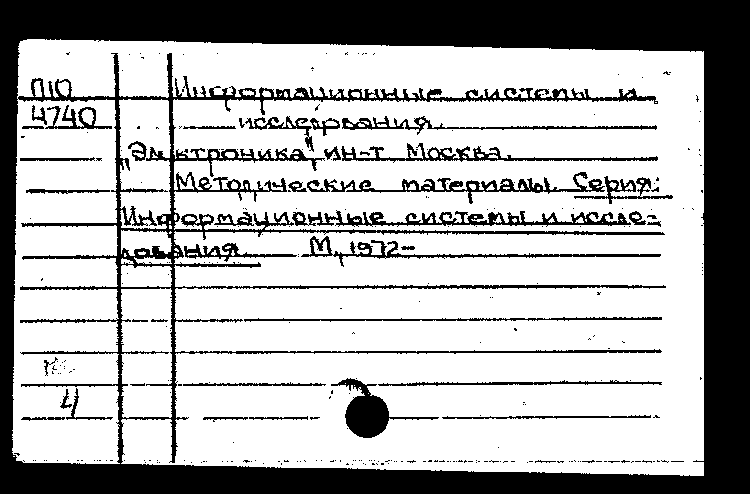 П10 Информационные системы и
4740 исследования.
„Электроника" ин-т Москва.
Методические материалы. Серия:
Информационные системы и иссле-
дования. М., 1972-
4